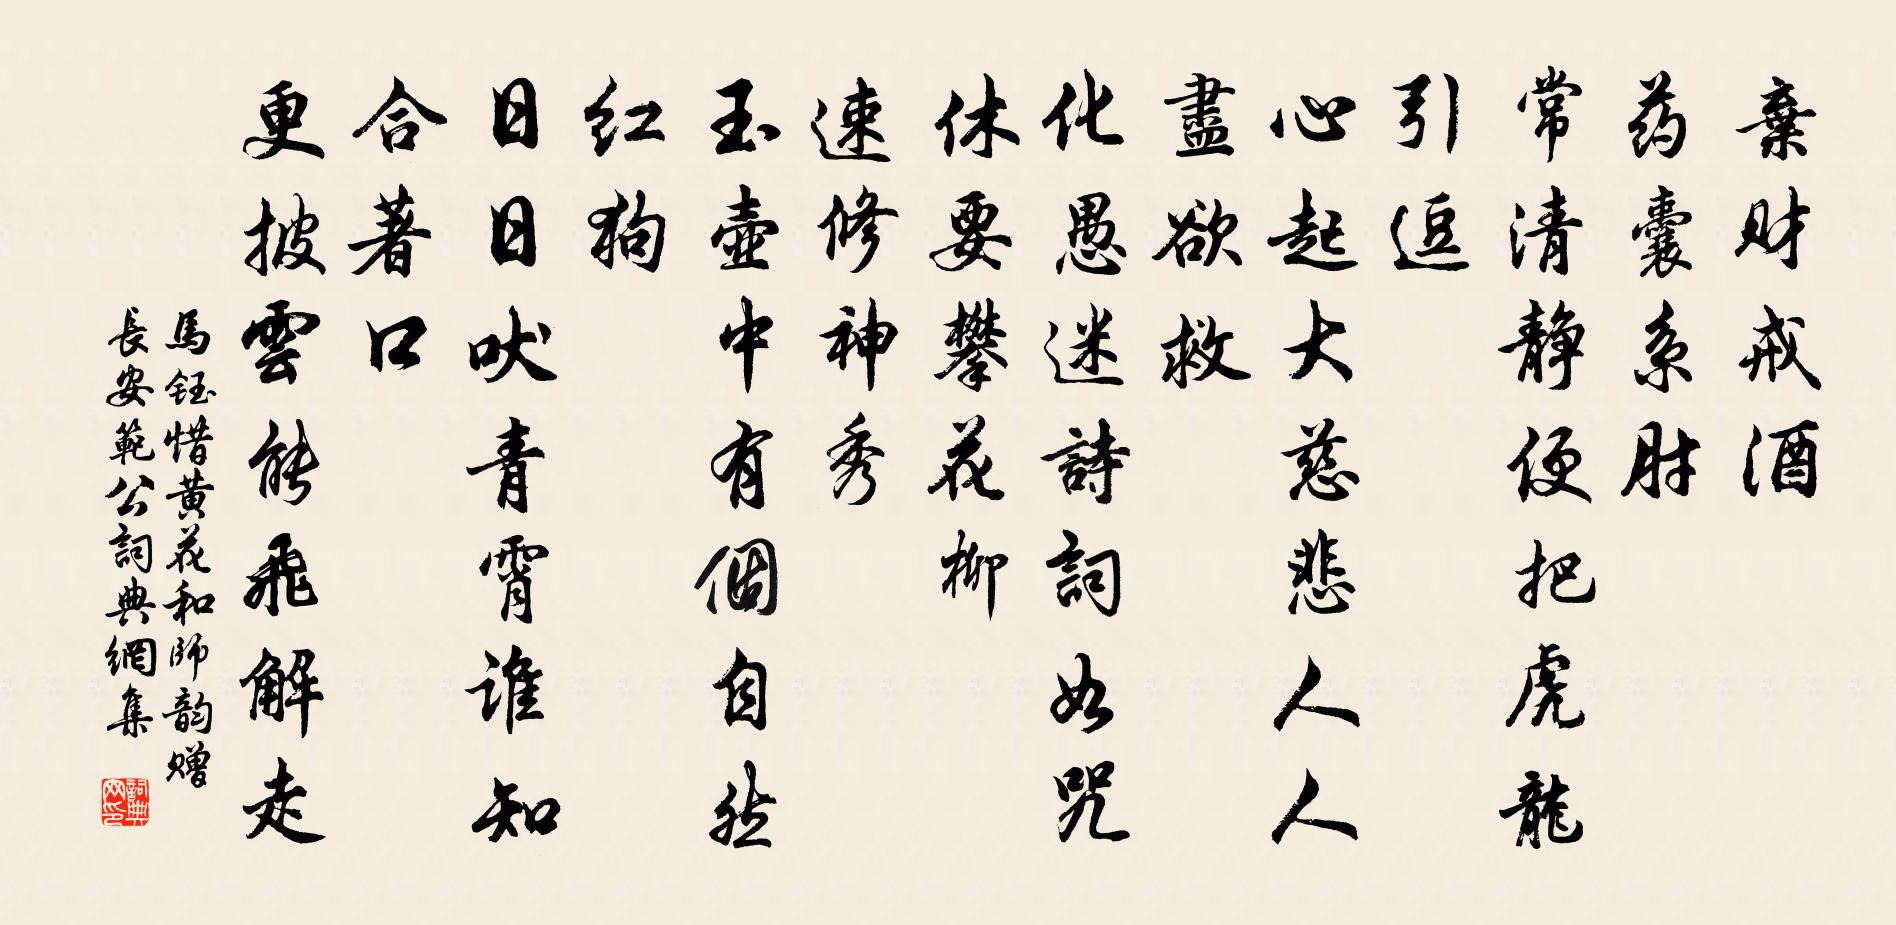 棄财戒酒
药囊系肘
常清静便把虎龍
引逗
心起大慈悲人人
盡欲救
化愚迷詩詞如咒
休要攀花柳
速修神秀
玉壺中有個自然
红狗
日日吠青霄谁知
合著口
更披雲能飛解走
馬鈺惜黄花和师韵赠
長安範公詞典網集
詞典网印